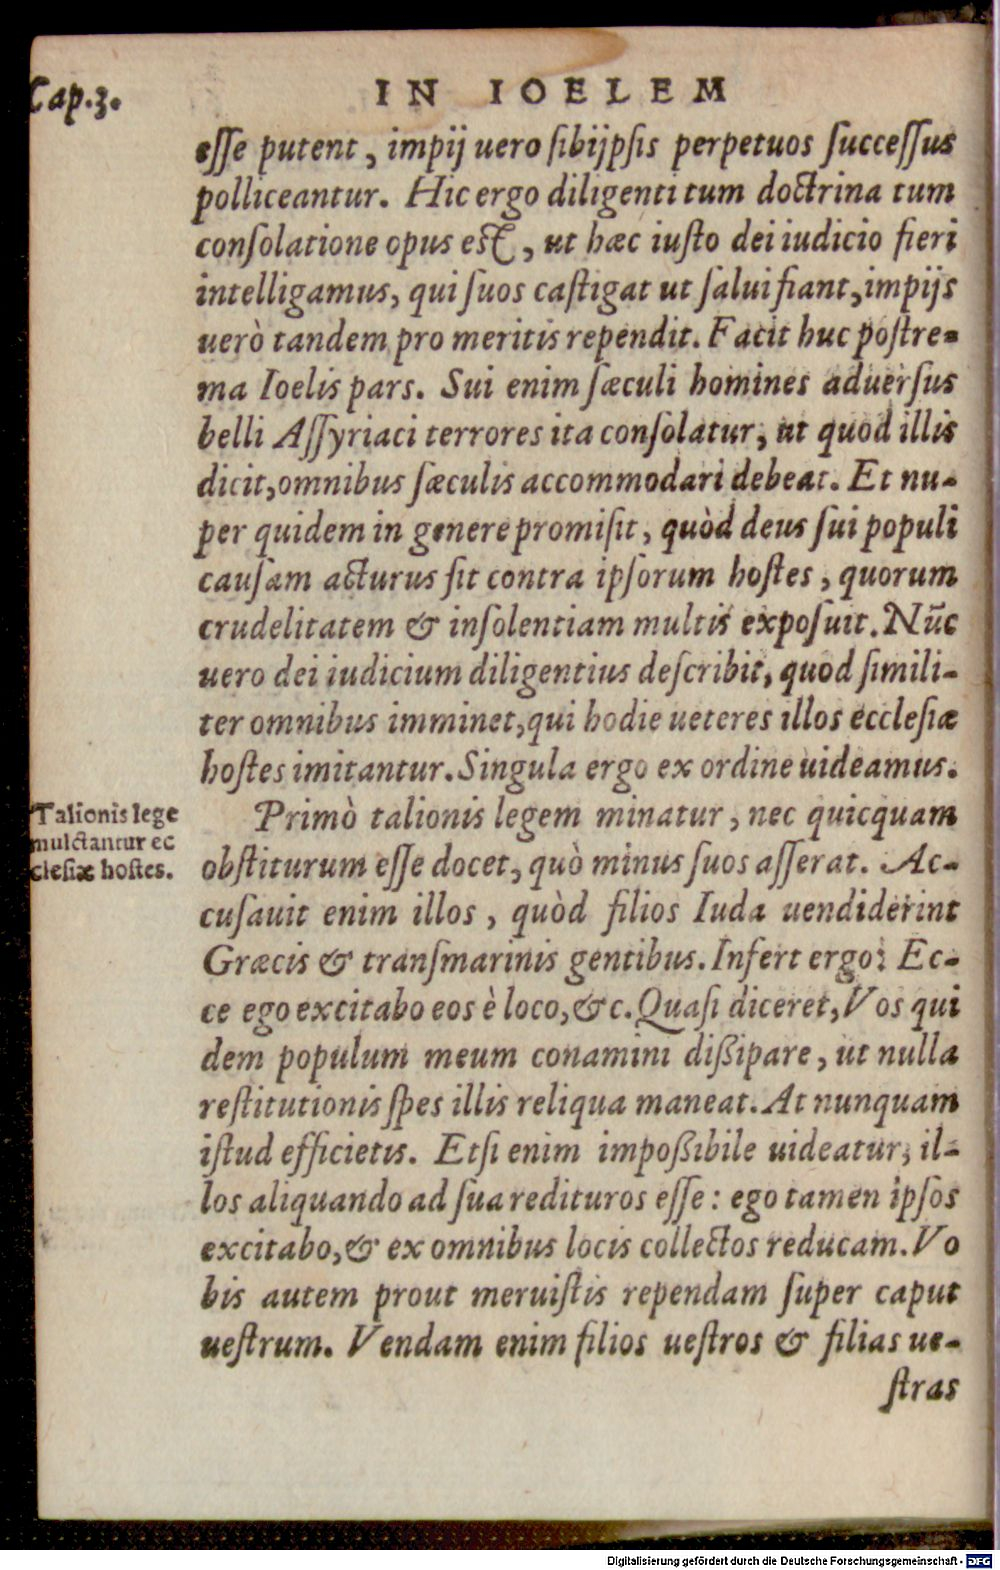 Cap.3.
IN IOELEM
esse putent, impij uero sibijpsis perpetuos successus
polliceantur. Hic ergo diligenti tum doctrina tum
consolatione opus est, ut hæc iusto dei iudicio fieri
intelligamus, qui suos castigat ut salui fiant, impijs
uerò tandem pro meritis rependit. Facit huc postre-
ma Ioelis pars. Sui enim sæculi homines aduersus
belli Assyriaci terrores ita consolatur, ut quod illis
dicit, omnibus sæculis accommodari debeat. Et nu-
per quidem in genere promisit, quòd deus sui populi
causam acturus sit contra ipsorum hostes, quorum
crudelitatem & insolentiam multis exposuit. Nūc
uero dei iudicium diligentius describit, quod simili-
ter omnibus imminet, qui hodie ueteres illos ecclesiæ
hostes imitantur. Singula ergo ex ordine uideamus.
Talionis lege
mulctantur ec
clesiæ hostes.
Primò talionis legem minatur, nec quicquam
obstiturum esse docet, quò minus suos asserat. Ac-
cusauit enim illos, quòd filios Iuda uendiderint
Græcis & transmarinis gentibus. Infert ergo: Ec-
ce ego excitabo eos è loco, &c. Quasi diceret, Vos qui
dem populum meum conamini dißipare, ut nulla
restitutionis spes illis reliqua maneat. At nunquam
istud efficietis. Etsi enim impoßibile uideatur, il-
los aliquando ad sua redituros esse: ego tamen ipsos
excitabo, & ex omnibus locis collectos reducam. Vo
bis autem prout meruistis rependam super caput
uestrum. Vendam enim filios uestros & filias ue-
stras
Digitalisierung gefördert durch die Deutsche Forschungsgemeinschaft - DFG